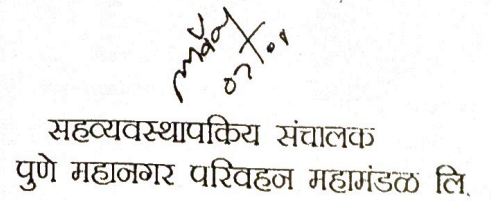 सहव्यवस्थापकिय संचालक
पुणे महानगर परिवहन महामंडळ लि.